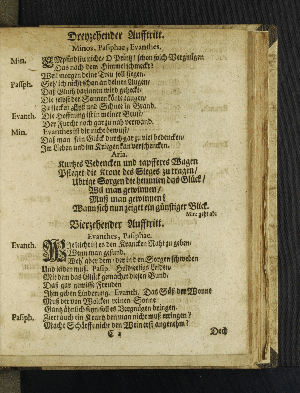 Dreyzehender Aufftritt.
Minos, Pasiphae, Evanthes.
Min. Empfindstu nicht / O Printz / schon solch Vergnügen
Das nach dem Himmel schmeckt?
Weil morgen deine Treu soll siegen.
Pasiph. Seh ich nicht schon an deinen Augen /
Das Gluth darinnen wird geheckt /
Die selbst der Sonnen
Zu stecken Eiß und Schnee in Brand.
Evanth. Die Hoffnung ist in meiner Seele /
Der Furcht noch gar zu nah verwand.
Min. Evanthes ist dir nicht bewust /
Daß man sein Glück durch gar zu viel bedencken /
Im Lieben und im Kriegen kan verschencken.
Aria.
Kurtzes Bedencken und tapfferes Wagen
Pfleget die Krone des Sieges zu tragen /
Ubrige Sorgen die hemmen das Glück /
Wil man gewinnen /
Muß man gewinnen?
Wann sich nun zeiget ein günstiger Blick.
Min. geht ab.
Vierzehender Aufftritt.
Evanthes, Pasiphae.
Evanth. Wie
Wenn man gesund.
Weh aber dem / der in den Sorgen schweben
Und leiden muß. Pasip.
Mit dem das Glück gemachet diesen Bund /
Daß gar gewisse Freuden
Ihm geben Linderung. Evanth. Das Süß der Wonne
Muß der von Wolcken reinen Sonne
Gantz ähnlich seyn / soll es Vergnügen bringen.
Pasiph. Ziert auch ein Krantz den man nicht muß erringen?
Macht Schärffe nicht den Wein erst angenehm?
C 2
Doch